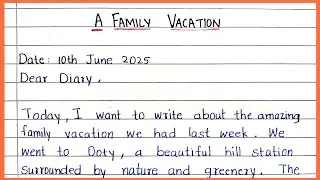 A Family Vacation
Date: 10th June 2025
Dear Diary,
Today, I want to write about the amazing
family vacation we had last week. We
went to Doty, a beautiful hill station
surrounded by nature and greenery. The